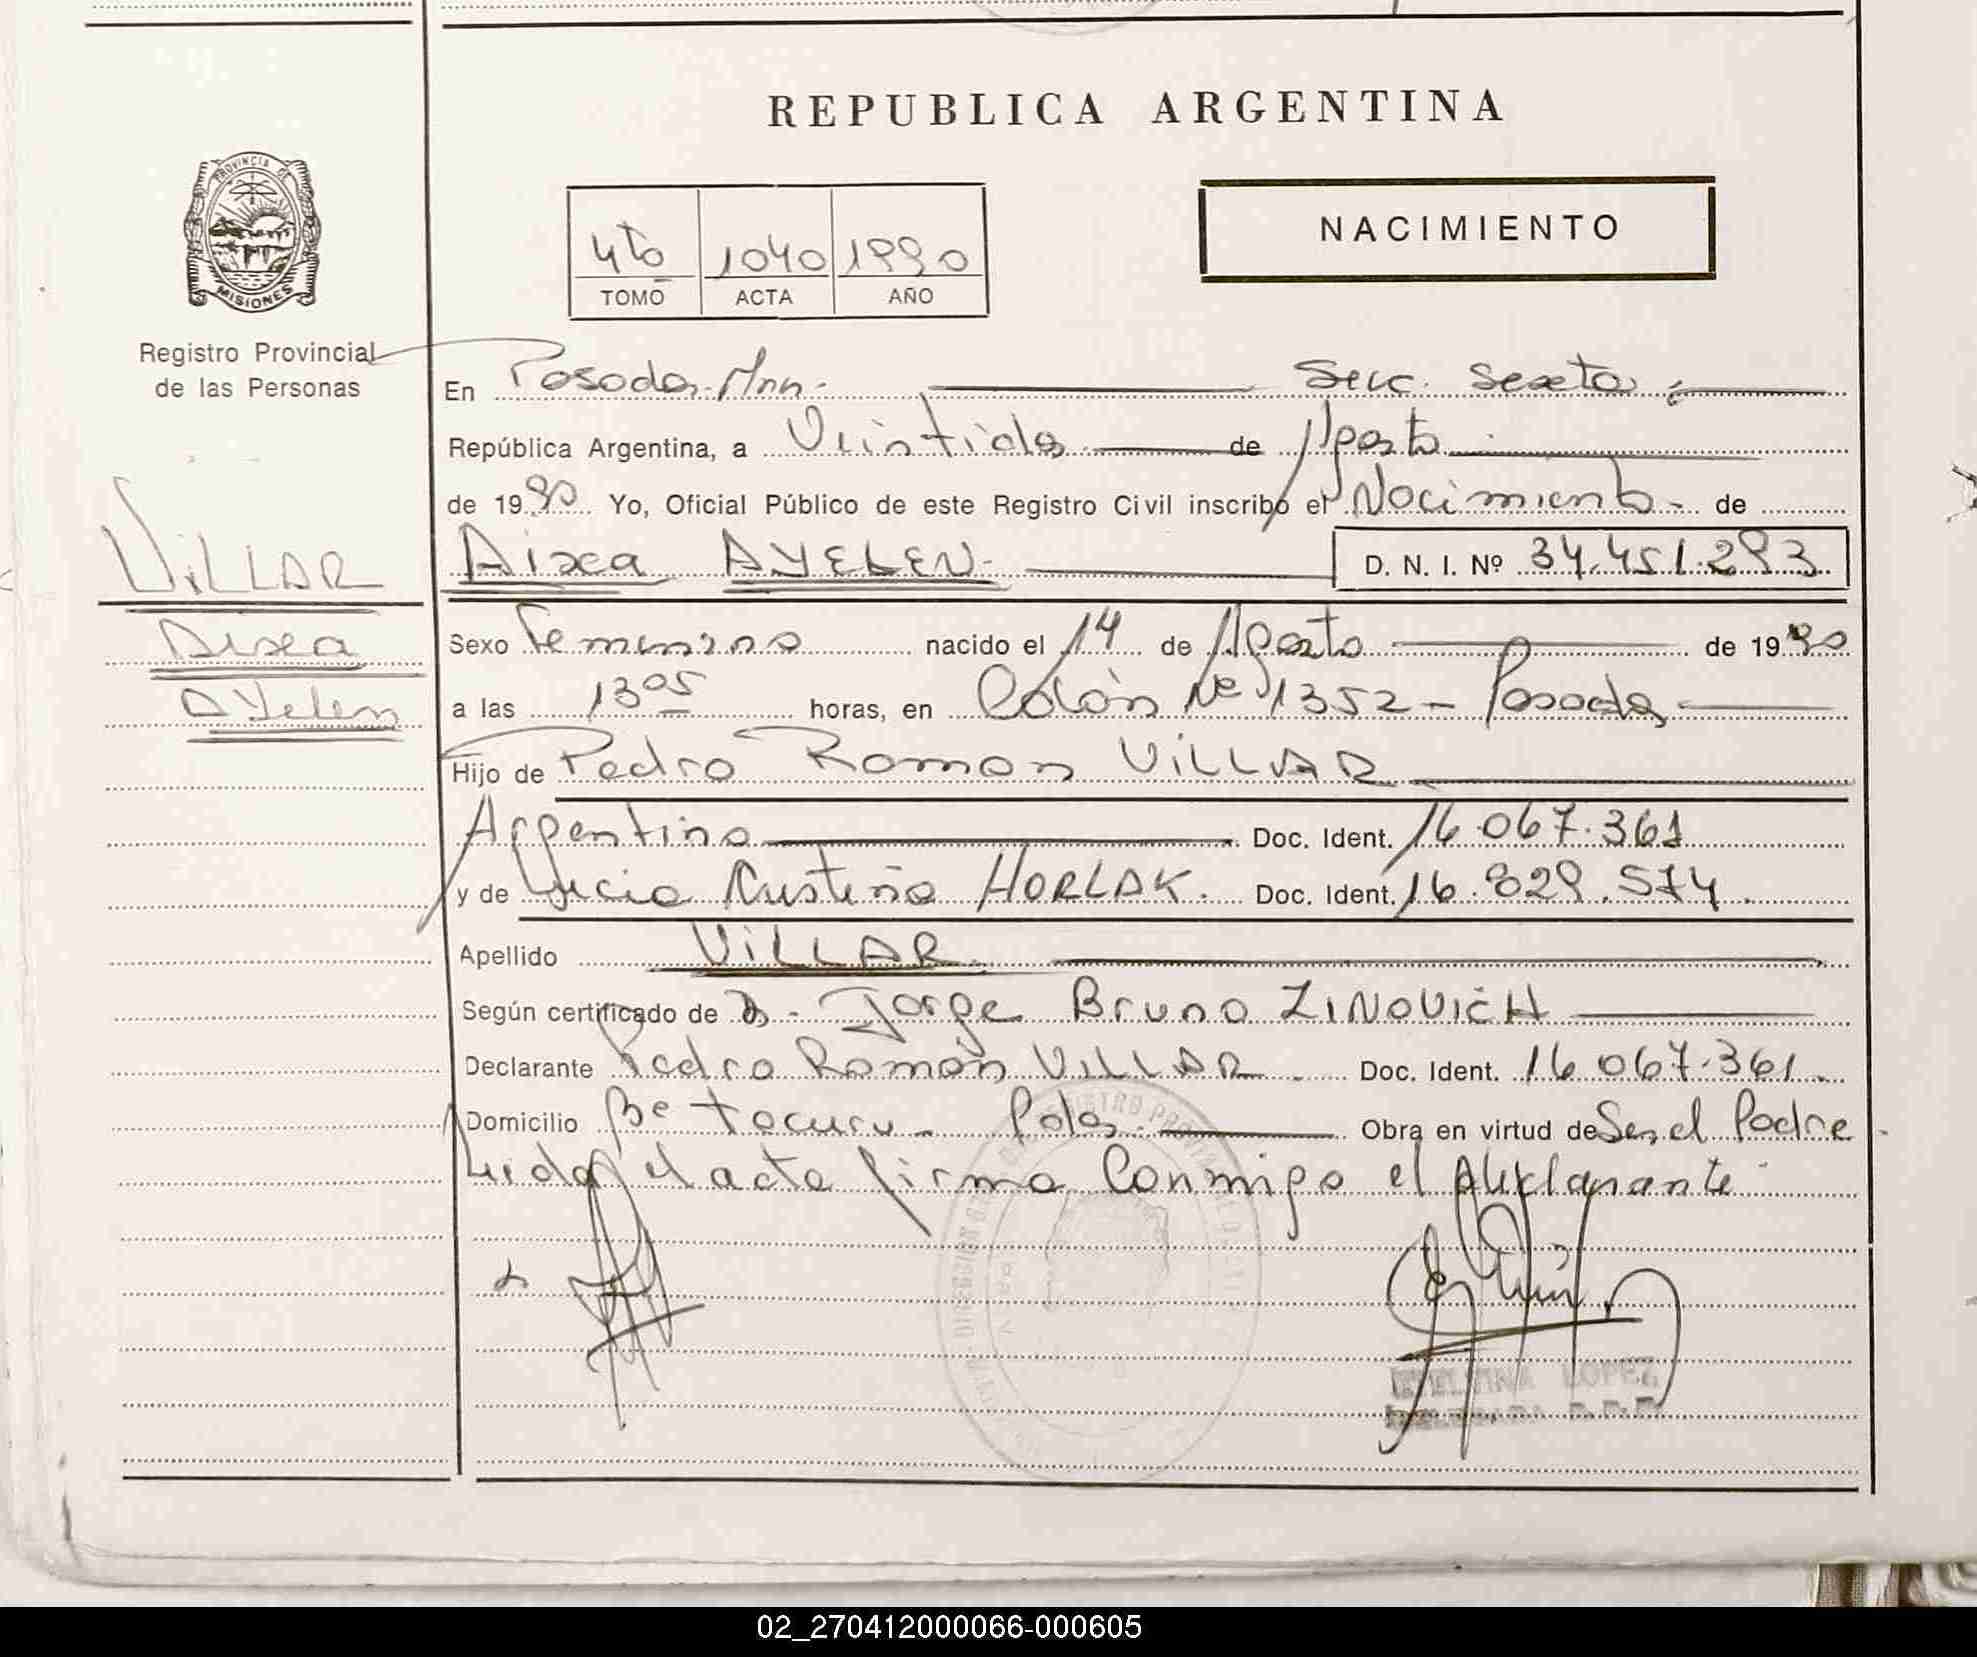 REPUBLICA ARGENTINA
PROVINCIA DE
MISIONES
Registro Provincial
de las Personas
NACIMIENTO
4to 1040 1990
TOMO ACTA AÑO
En Posadas Mnes. Secc. Sexta
República Argentina, a Veintidos de Agosto
de 1990 Yo, Oficial Público de este Registro Civil inscribo el Nacimiento de
VILLAR
Aixa
Ayelen
Aixa AYELEN. D. N. I. Nº 34.451.293
Sexo Femenino nacido el 14 de Agosto de 1990
a las 13 05 horas, en Colón Nº 1352 - Posadas
Hijo de Pedro Ramon VILLAR
Argentino Doc. Ident. 16.067.361
y de Lucia Cristina HORLAK. Doc. Ident. 16.829.574
Apellido VILLAR
Según certificado de Jorge Bruno ZINOVICH
Declarante Pedro Ramón VILLAR Doc. Ident. 16.067.361
Domicilio Bº Tacuru - Pdas Obra en virtud de Ser el Padre
Leida el acta firma Conmigo el declarante
LOPEZ
02_270412000066-000605